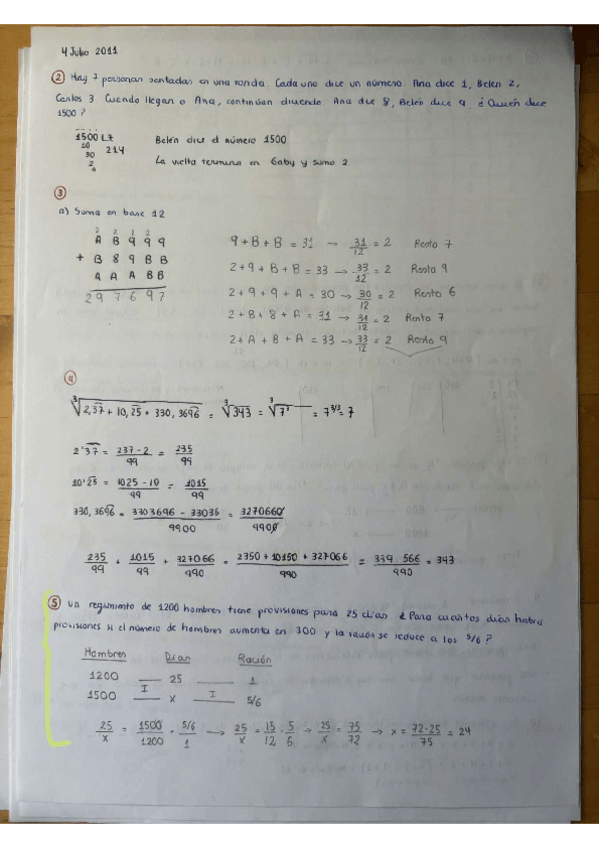 4 Julio 2011
② Hay 7 personas sentadas en una ronda. Cada uno dice un número: Ana dice 1, Belen 2,
Carlos 3. Cuando llegan a Ana, continúan diciendo: Ana dice 8, Belén dice 9. ¿Quién dice
1500?
1500 L7 Belén dice el número 1500
10 214
30 La vuelta termina en Gaby y sumo 2
2
③
a) Suma en base 12
2 2 2 2
A B 9 9 9 9 + B + B = 31 → 31/12 = 2 Resto 7
+ B 8 9 B B 2 + 9 + B + B = 33 → 33/12 = 2 Resto 9
9 A A B B 2 + 9 + 9 + A = 30 → 30/12 = 2 Resto 6
2 9 7 6 9 7 2 + B + 8 + A = 31 → 31/12 = 2 Resto 7
2 + A + B + A = 33 → 33/12 = 2 Resto 9
④
∛(2,37 + 10,25 + 330,3696) = ∛343 = ∛7³ = 7^3/3 = 7
2'37 = 237 - 2 / 99 = 235 / 99
10'25 = 1025 - 10 / 99 = 1015 / 99
330,3696 = 3303696 - 33036 / 9900 = 3270660 / 9900
235/99 + 1015/99 + 327066/990 = 2350 + 10150 + 327066 / 990 = 339 566 / 990 = 343
⑤ Un regimiento de 1200 hombres tiene provisiones para 25 días. ¿Para cuantos días habrá
provisiones si el número de hombres aumenta en 300 y la ración se reduce a los 5/6?
Hombres Días Ración
1200 — 25 — 1
1500 I x I 5/6
25/x = 1500/1200 · 5/6 / 1 → 25/x = 15/12 · 5/6 → 25/x = 75/72 → x = 72·25 / 75 = 24